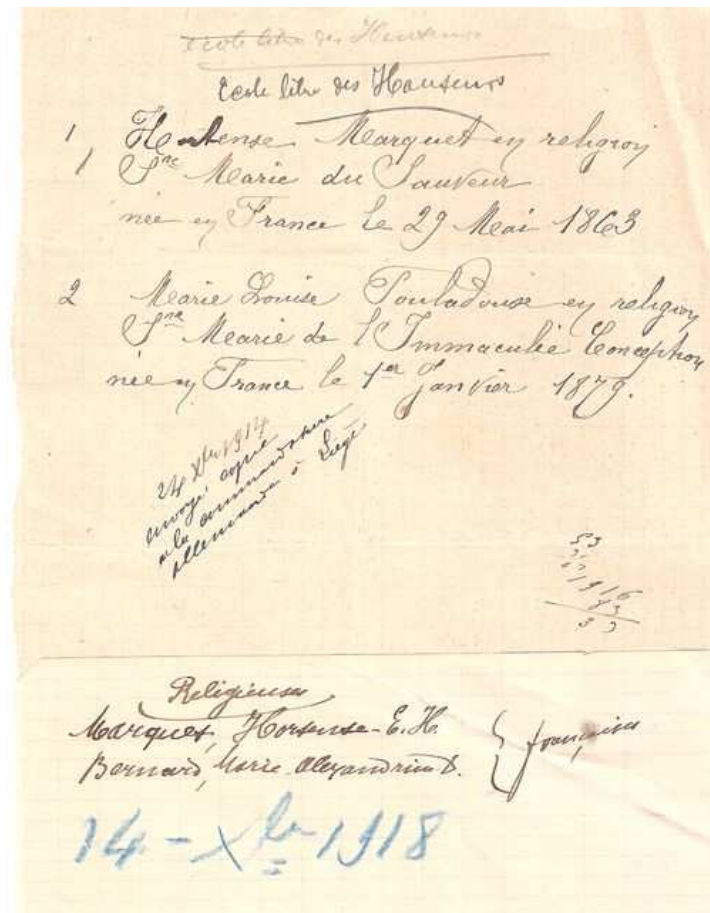 école libre des Hauseurs
École libre des Hauseurs
1, Hortense Marquet en religion
1 Sne Marie du Sauveur
née en France le 29 Mai 1863
2 Marie Louise Pouladouse en religion
Sne Marie de l'Immaculée Conception
née en France le 1er Janvier 1879.
24 Xbre 1914
envoyé copie
à la commandature
allemande à Liège
53
1916
83
33
Religieuses
Marquet, Hortense-E. H.
Bernard, Marie Alexandrine D.
} françaises
14 - Xbre 1918